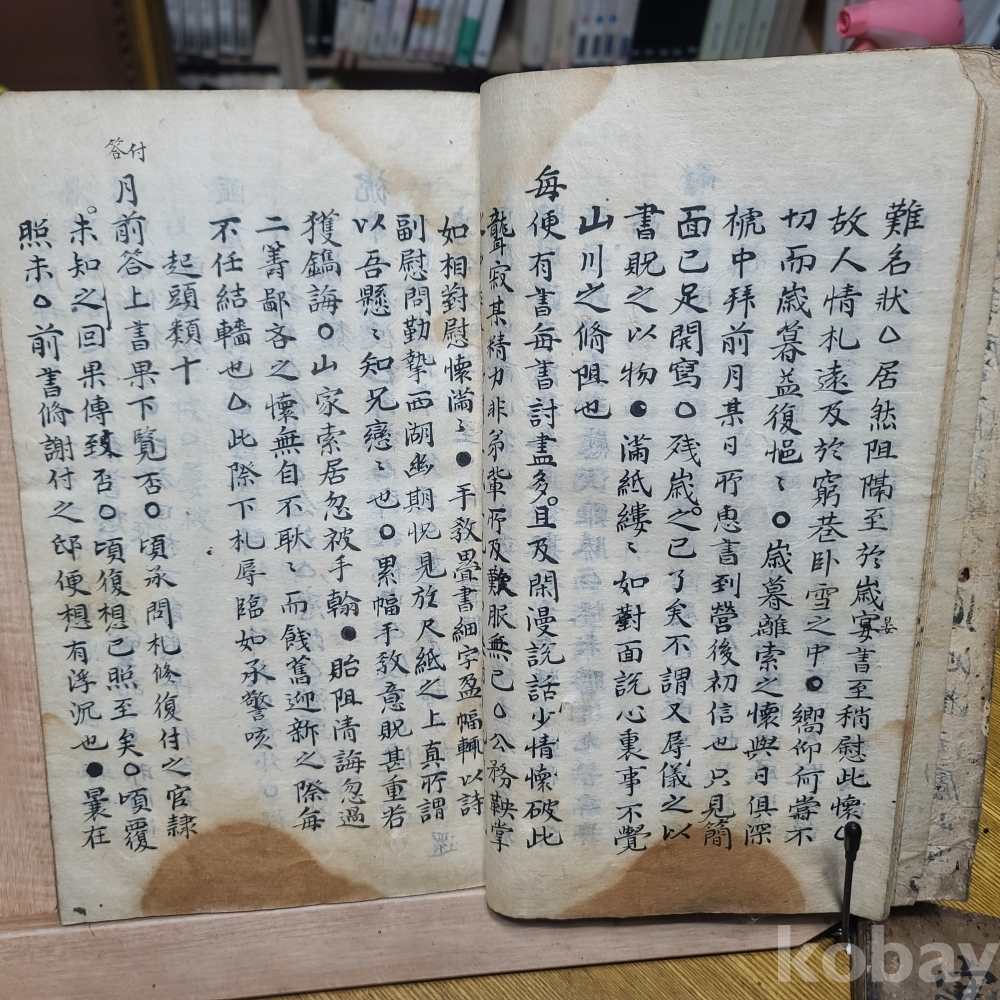 難名狀△居然阻隔至於歲宴書至稍慰此懷△
晏
故人情札遠及於窮巷臥雪之中○嚮仰何嘗不
切而歲暮益復悒〻○歲暮離索之懷與日俱深
拜前月某日所惠書到營後初信也只見簡
面已足開寫○残歲之已了矣不謂又辱儀之以
書貺之以物●滿紙縷〻如對面說心裏事不覺
山川之脩阻也
每便有書每書討盡多且及閑漫說話少情懷破此
聾寂某精力非弟輩所及歎服無已△公務鞅掌
如相對慰懷滿〻●手敎疊書細字盈幅輒以詩
副慰問勤摯西湖幽期怳見於尺紙之上真所謂
以吾懸〻知兄戀〻也○累幅手敎意貺甚重若
獲鐫誨○山家索居忽被手翰●貽阻清誨忽過
二籌鄙吝之懷無自不耿〻而餞舊迎新之際每
不任結轖也△此際下札辱臨如承警咳
起頭類十
付答
月前答上書果下覽否○頃承問札修復付之官隷
未知之回果傳致否○頃復想已照至矣○頃覆
照未△前書脩謝付之邸便想有浮沉也●曩在
kobay